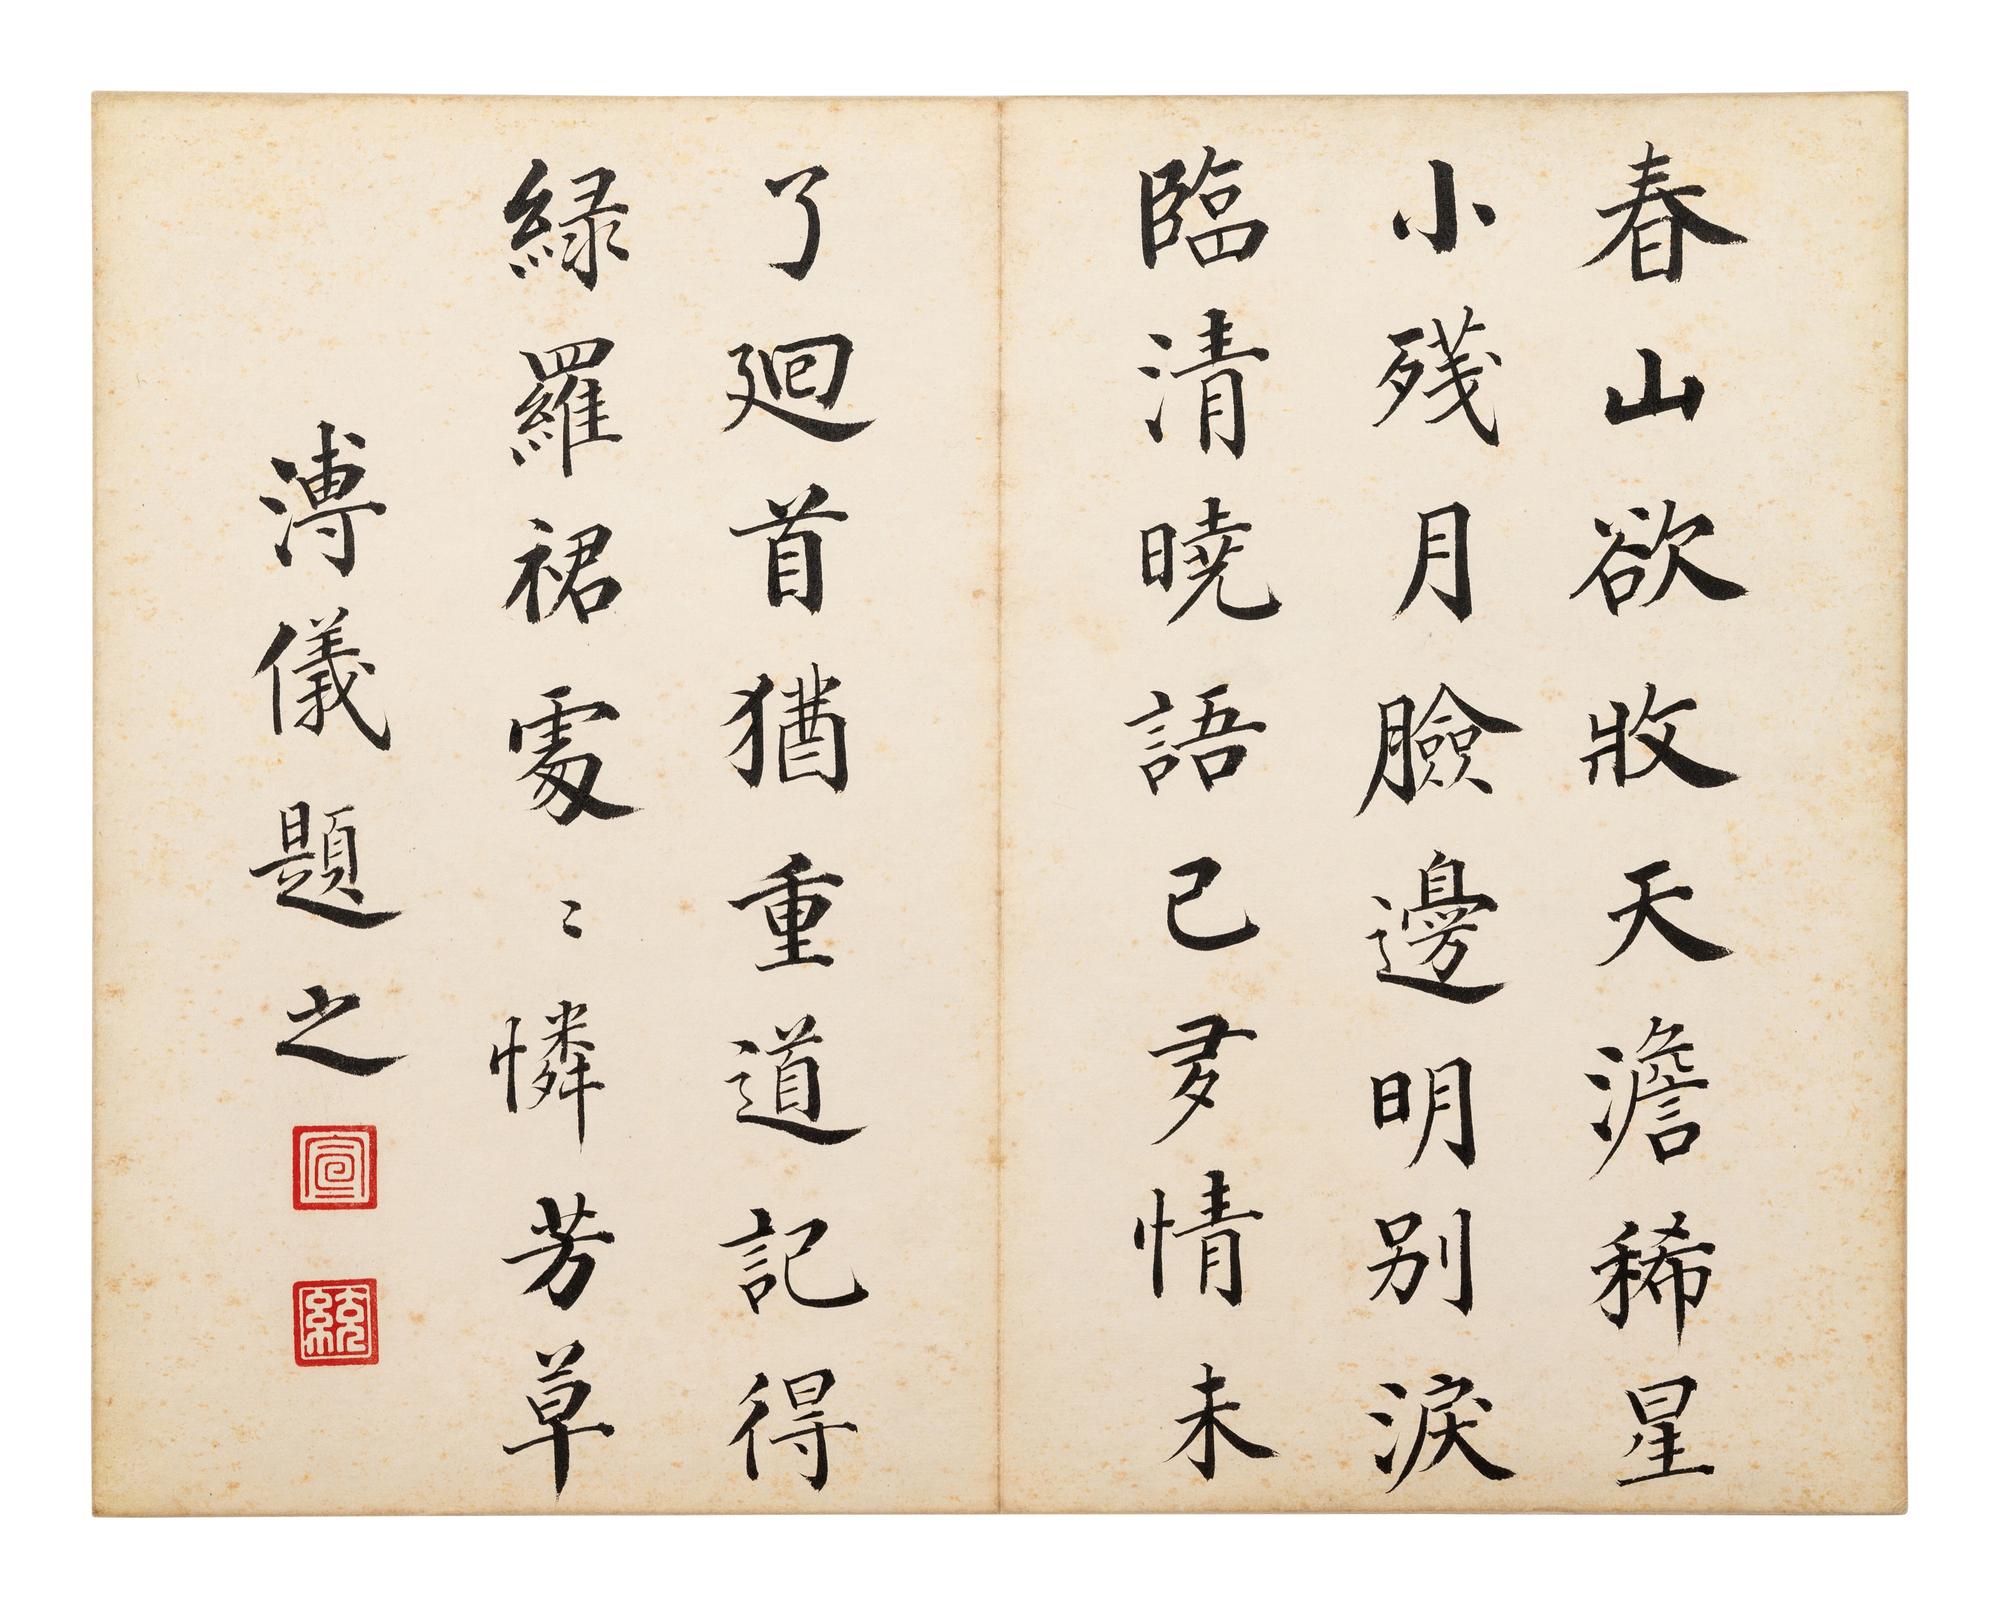 春山欲收天澹稀星
小殘月臉邊明別淚
臨清曉語已多情未
了迴首猶重道記得
緑羅裙處〻憐芳草
溥儀題之
宣
統